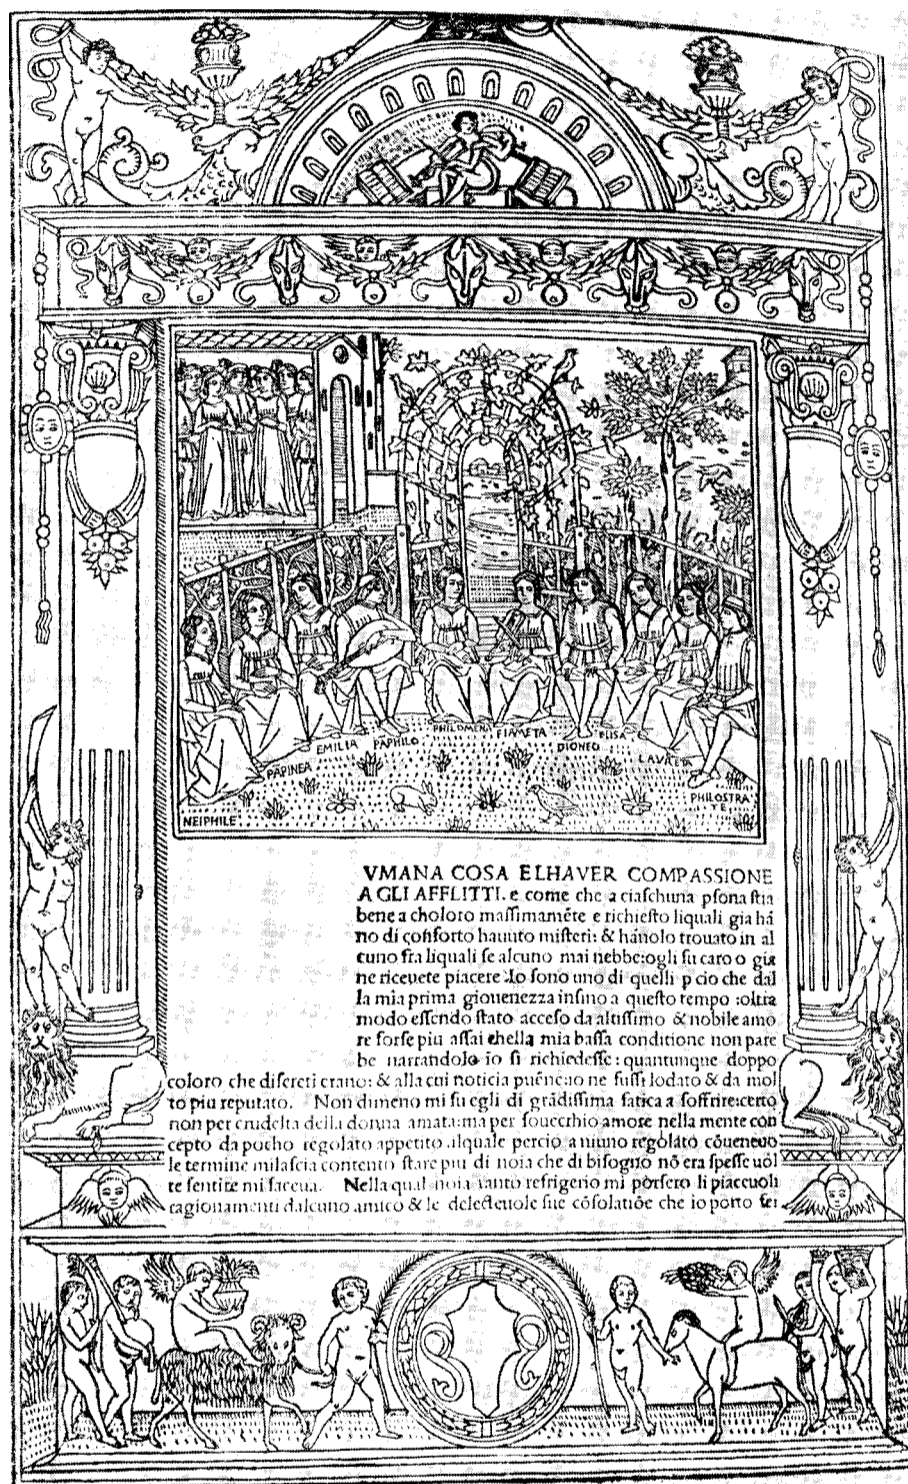 NEIPHILE
PAPINEA
EMILIA
PAPHILO
PHILOMENA
FIAMETA
DIONEO
ELISA
LAURETA
PHILOSTRA
TE
VMANA COSA ELHAVER COMPASSIONE
A GLI AFFLITTI. e come che a ciaſchuna pſona ſtia
bene a choloro maſſimamēte e richieſto liquali gia hā
no di cōſorto hauuto miſteri: & hānolo trouato in al
cuno fra liquali ſe alcuno mai nebbe: ogli fu caro o gia
ne riceuete piacere .Io ſono uno di quelli p cio che dal
la mia prima giouenezza inſino a queſto tempo :oltra
modo eſſendo ſtato acceſo da altiſſimo & nobile amo
re forſe piu aſſai chella mia baſſa conditione non pare
be narrandolo io ſi richiedeſſe: quantunque doppo
coloro che diſcreti erano: & alla cui noticia ne fuſſi lodato & da mol
to piu reputato. Non dimeno mi fu egli di grādiſſima fatica a ſoffrire:certo
non per crudelta della donna amata:ma per ſouerchio amore nella mente con
cepto da pocho regolato appetito .ilquale percio a niuno regolato
le termine milaſcia contento ſtare piu di noia che di biſogno nō era ſpeſſe uol
te ſentire mi faceua. Nella qual noia tanto refrigerio mi porſero li piaceuoli
ragionamenti dalcuno amico & le delecteuole ſue cōſolatiōe che io porto